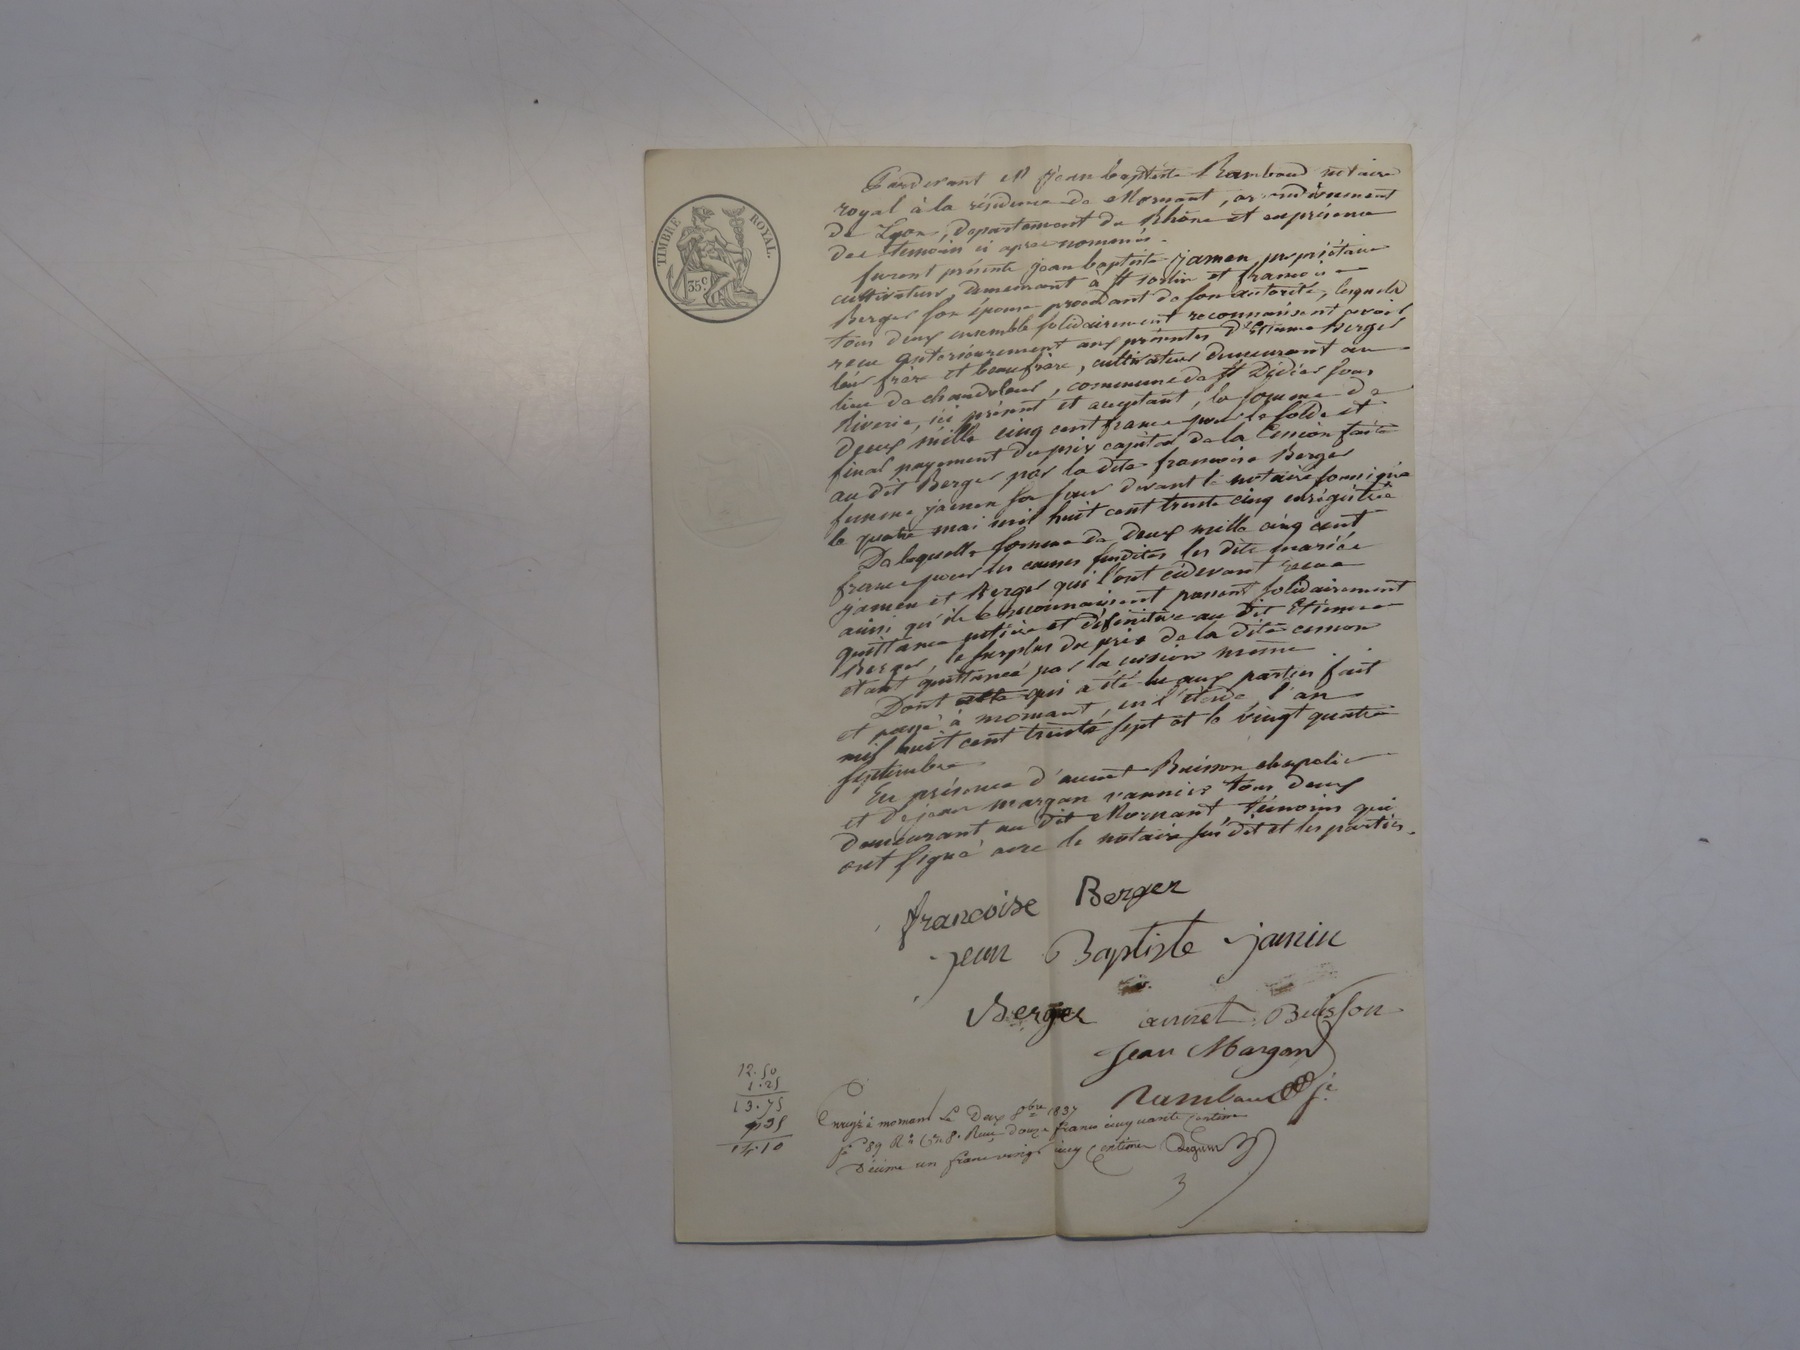 TIMBRE ROYAL.
35.c
Pardevant Me jean baptiste Rambaud notaire
royal à la résidence de Mornant, arrondissement
de Lyon, département du Rhône et en présence
des témoins ci après nommés.
furent présents jean baptiste jamen propriétaire
cultivateur, demeurant à St Sorlin et francoise
Berger son épouse procédant de son autorité, lesquels
tous deux ensemble solidairement reconnaissent avoir
recu antérieurement aux présentes d'Etienne Berger
leur frère et beaufrère, cultivateur demeurant au
lieu de chaudoleus, commune de St Didier sous
Riverie, ici présent et acceptant, la somme de
deux mille cinq cent francs pour le solde et
final payement du prix capital de la Cession faite
au dit Berger par la dite francoise Berger
femme jamen sa soeur devant le notaire soussigné
le quatre mai mil huit cent trente cinq enrégistrée
De laquelle somme de deux mille cinq cent
francs pour les causes susdites les dits mariés
jamen et Berger qui l'ont cidevant recue
ainsi qu'ils le reconnaissent passent solidairement
quittance entière et définitive au dit Etienne
Berger, le surplus du prix de la dite cession
étant quittancé par la cession même
Dont acte qui a été lu aux parties fait
et passé à mornant, en l'étude l'an
mil huit cent trente sept et le vingt quatre
septembre
En présence d'annet Buisson chapelier
et de jean margan vannier tous deux
demeurant au dit Mornant témoins qui
ont signé avec le notaire sus dit et les parties.
francoise Berger
jean Baptiste jamin
Berger annet Buisson
Jean Margan
Rambaud
12.50
1.25
13.75
35
14.10
Enregé à mornant Le Deux 8bre 1837
fo 89 Ro Ce 8. Reçu douze francs cinquante centimes
Décime un franc vingt cinq centimes
3